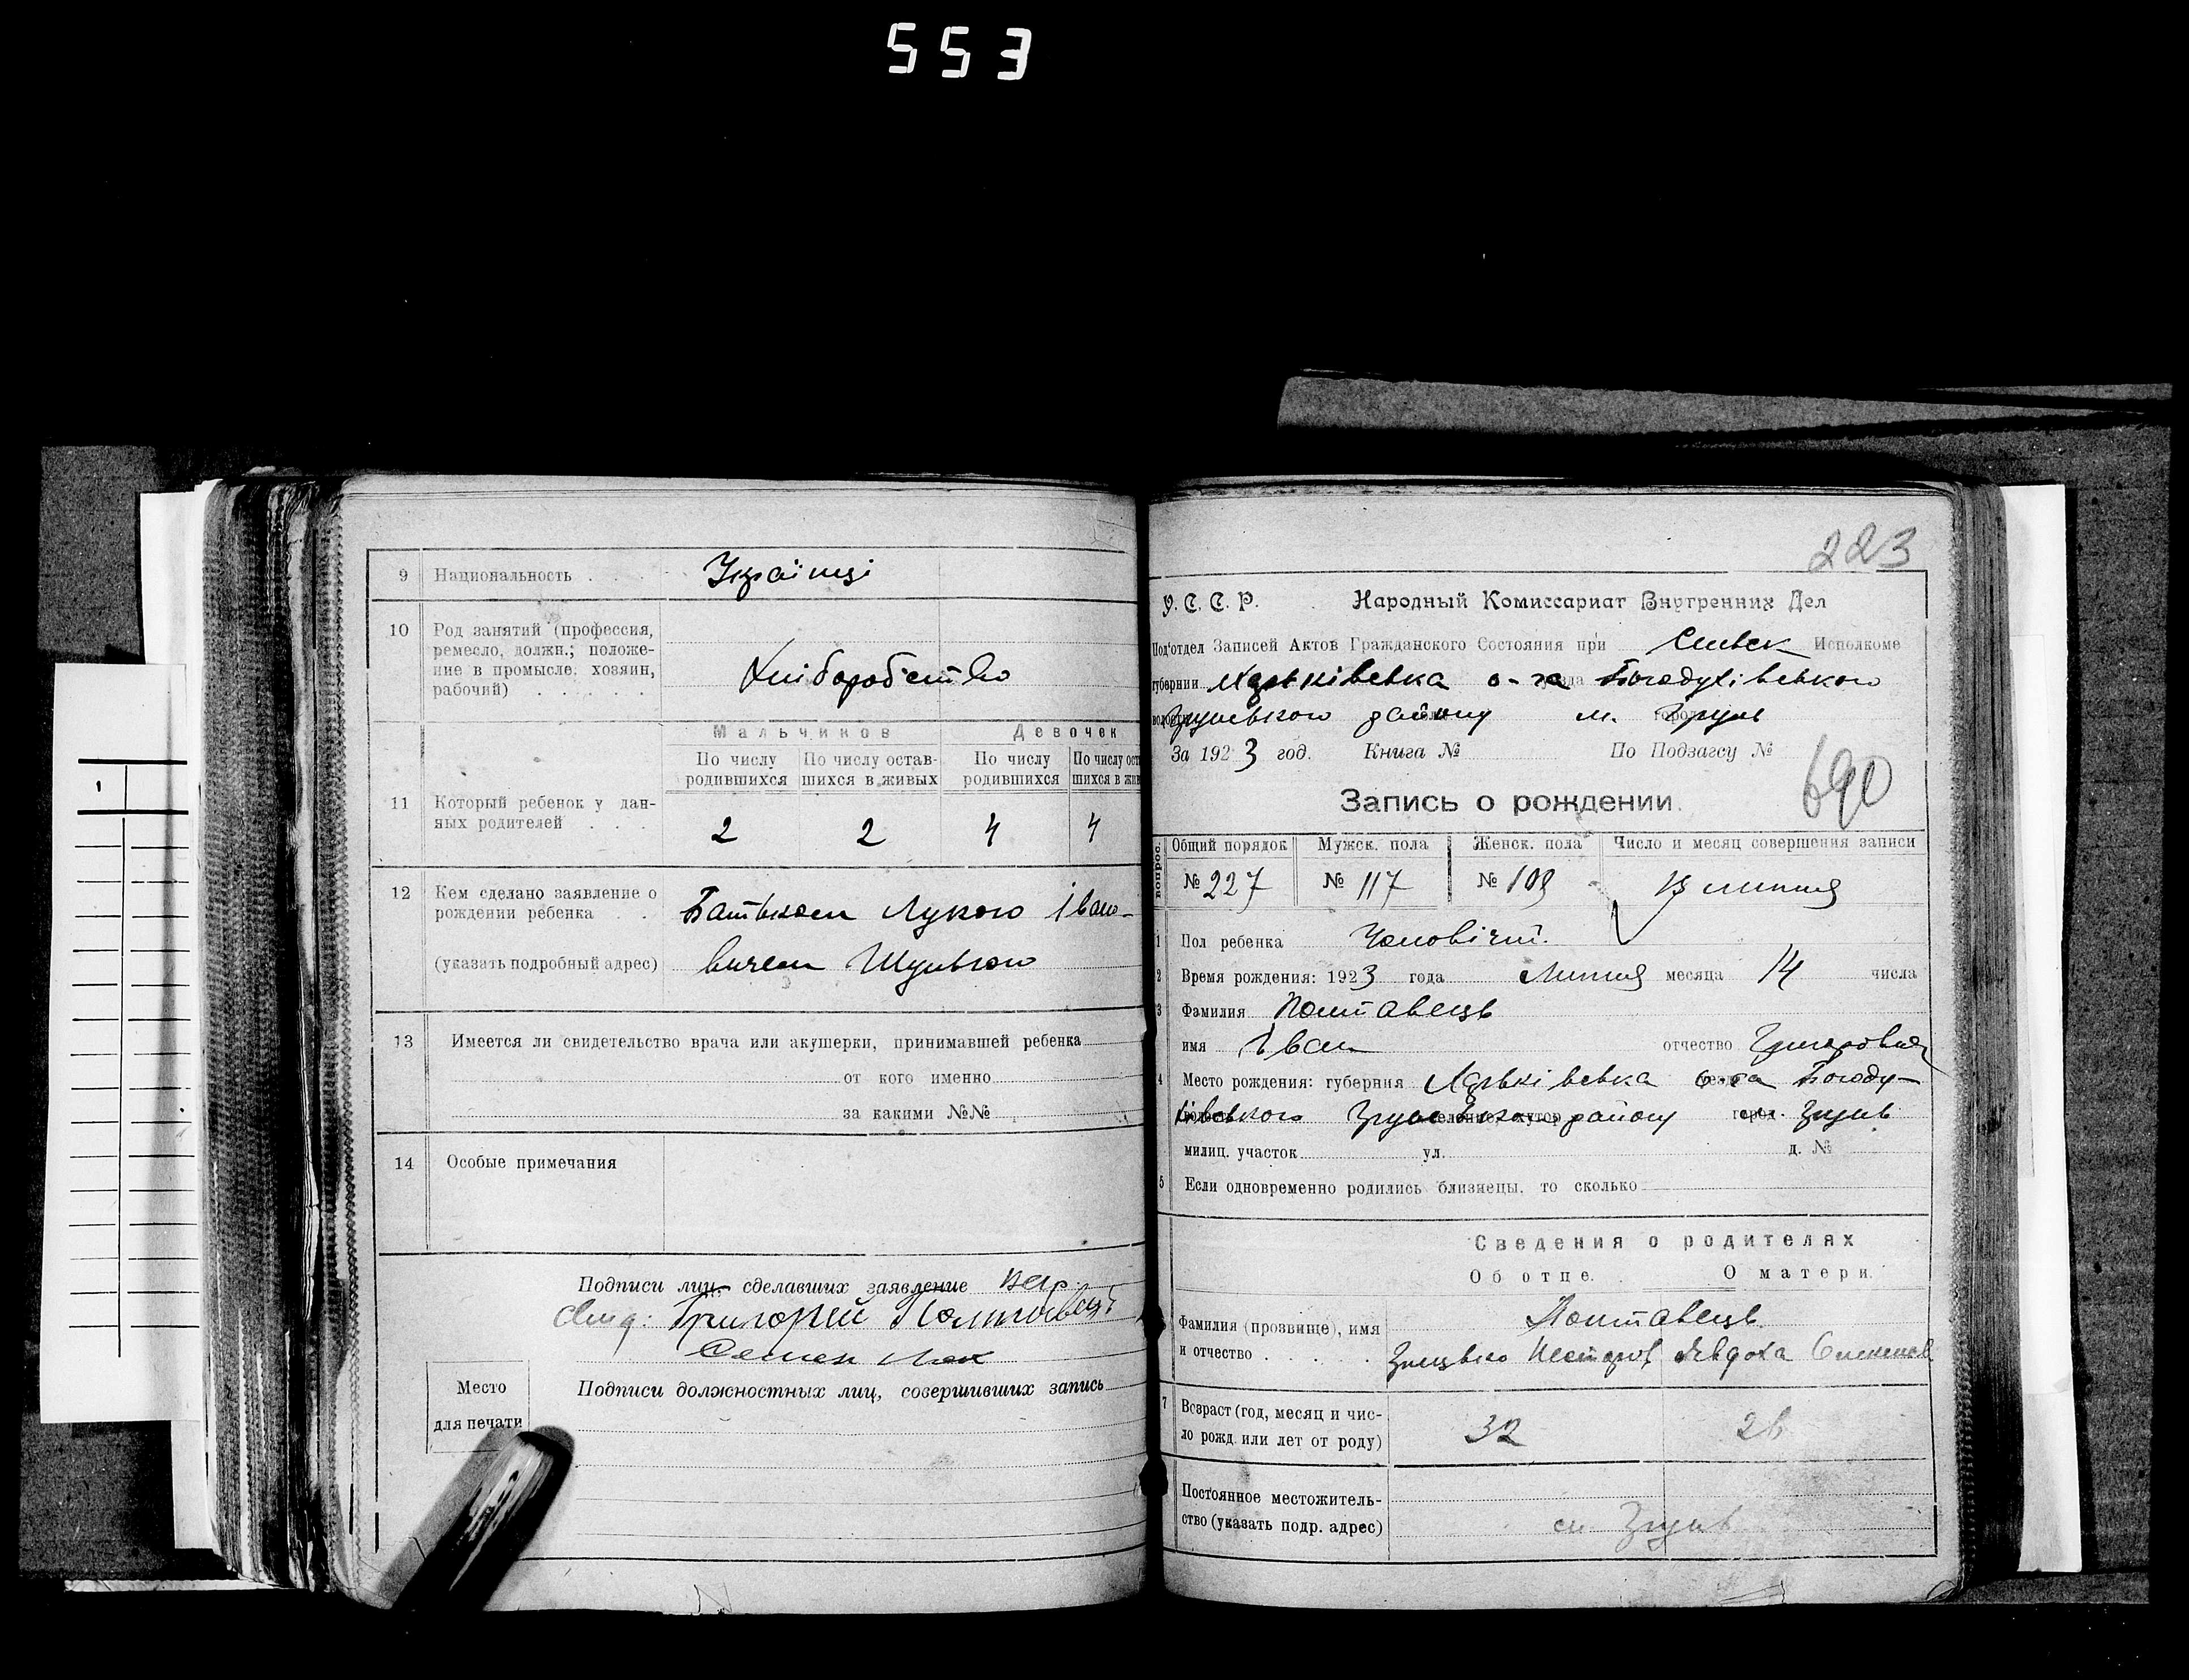 553
9 Национальность . . . Українці
10 Род занятий (профессия,
ремесло, должн.; положе-
ние в промысле: хозяин,
рабочий) . . . . . .
Хліборобство
Мальчиков Девочек
По числу родившихся По числу остав-шихся в живых По числу родившихся По числу ост шихся в жив
11 Который ребенок у дан-
ных родителей . . .
2 2 4 4
12 Кем сделано заявление о
рождении ребенка . .
(указать подробный адрес)
Батьком Лукою Івано-
вичем Шульгою
13 Имеется ли свидетельство врача или акушерки, принимавшей ребенка
от кого именно
за какими №№
14 Особые примечания
Подписи лиц, сделавших заявление
Григорий Полтавець
Семен Лях
Место
для печати
Подписи должностных лиц, совершивших запись
223
У. С. С. Р. Народный Комиссариат Внутренних Дел
Под'отдел Записей Актов Гражданского Состояния при Исполкоме
губернии Харківська о-га Богодухівського
району м.
За 1923 год. Книга № По Подзагсу №
690
Запись о рождении.
вопрос. Общий порядок Мужск. пола Женск. пола Число и месяц совершения записи
№ 227 № 117 № 109 липня
1 Пол ребенка Чоловіч.
2 Время рождения: 1923 года Липня месяца 14 числа
3 Фамилия Полтавець
имя Іван отчество Григорович
4 Место рождения: губерния Харківська о-га Богоду-
хівського району город
милиц. участок ул. д. №
5 Если одновременно родились близнецы, то сколько
Сведения о родителях
Об отце. О матери.
Фамилия (прозвище), имя
и отчество . . . . .
Полтавець
Грицько Нестеров Явдоха
7 Возраст (год, месяц и чис-
ло рожд. или лет от роду)
32
Постоянное местожитель-
ство (указать подр. адрес)